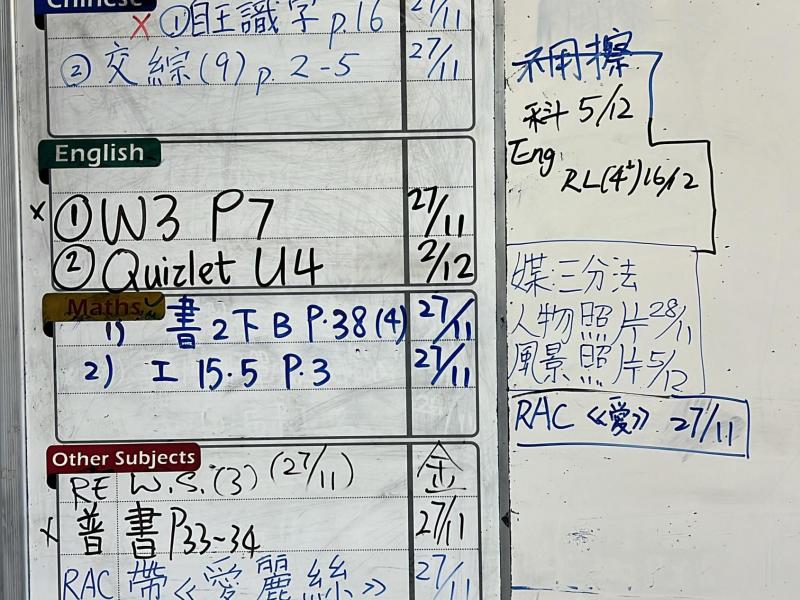 Chinese
× ①目王識字 p.16 27/11
② 交綜(9) p. 2-5 27/11
English
× ① W3 P7 27/11
② Quizlet U4 2/12
Maths
1) 書2下B P.38(4) 27/11
2) 工 15.5 P.3 27/11
Other Subjects
RE W.S.(3) (27/11) 金
× 普 書 P33-34 27/11
RAC 帶《愛麗絲》 27/11
不用擦
科 5/12
Eng
RL(4²)16/12
媒:三分法
人物照片 28/11
風景照片 5/12
RAC《愛》 27/11